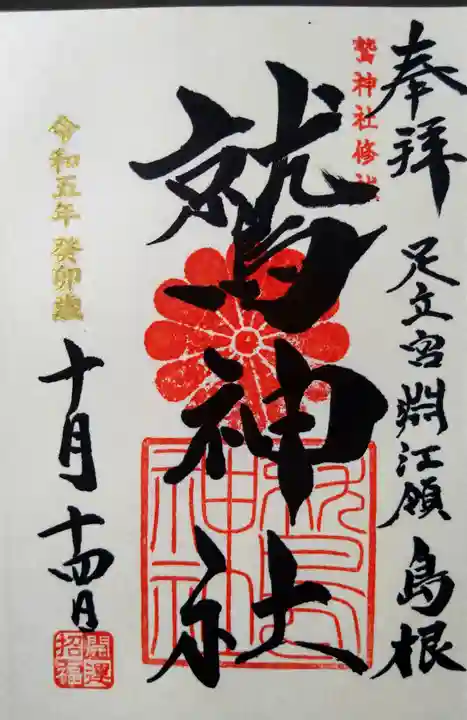 奉拝
足立宮淵江領島根
鷲神社修祓
鷲神社
鷲神社
令和五年癸卯歳
十月十四日
開運招福